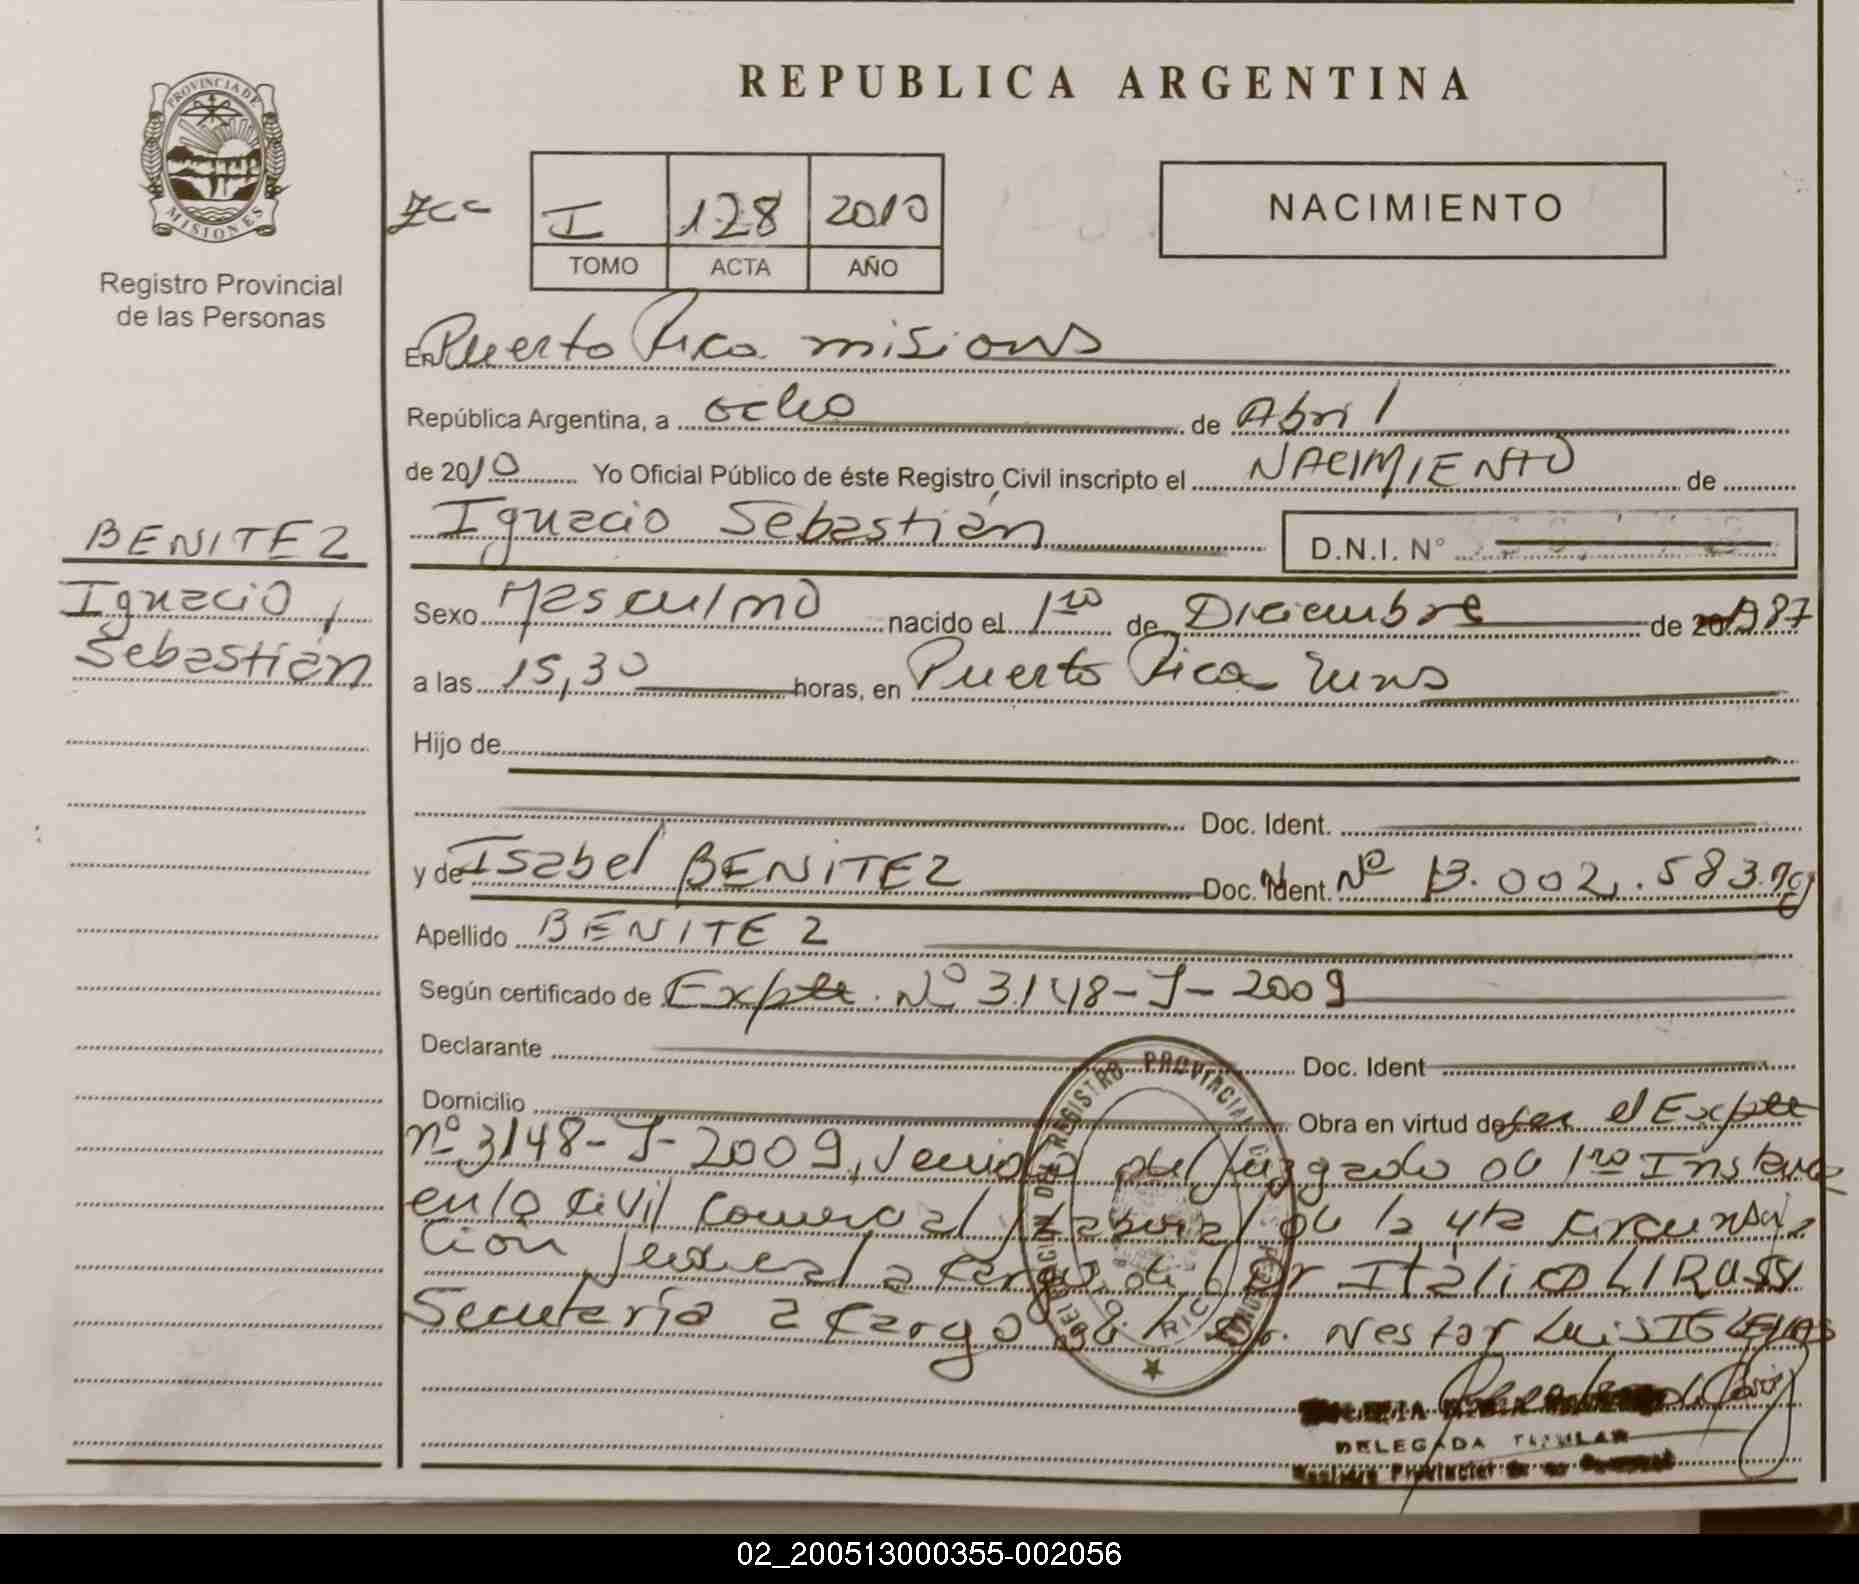 PROVINCIA DE
MISIONES
Registro Provincial
de las Personas
BENITEZ
Ignacio
Sebastián
REPUBLICA ARGENTINA
I 128 2010
TOMO ACTA AÑO
NACIMIENTO
En Puerto Rico misions
República Argentina, a ocho de Abril
de 2010 Yo Oficial Público de éste Registro Civil inscripto el NACIMIENTO de
Ignacio Sebastián D.N.I. N°
Sexo Masculino nacido el 1ro de Diciembre de 1987
a las 15,30 horas, en Puerto Rico
Hijo de
Doc. Ident.
y de Isabel BENITEZ Doc. Ident. Nº 13.002.583
Apellido BENITEZ
Según certificado de Expte. Nº 3148-J-2009
Declarante Doc. Ident
Domicilio Obra en virtud de ser el Expte
nº 3148-J-2009, del Juzgado de 1ro Instancia
en lo Civil Comercial y Laboral de la 4ta Circunscrip
ción Judicial a cargo del Dr Italico LIRUSSI
Secretaría a cargo del Dr. Nestor Luis IGLESIAS
REGISTRO PROVINCIAL
DELEGADA TITULAR
Registro Provincial de las Personas
02_200513000355-002056